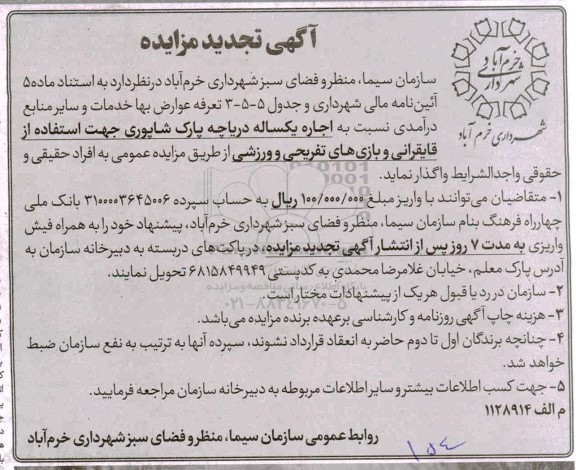 آگهی تجدید مزایده
خرم آباد
شهرداری
شهرداری خرم آباد
سازمان سیما، منظر و فضای سبز شهرداری خرم‌آباد درنظر دارد به استناد ماده ۵
آئین‌نامه مالی شهرداری و جدول ۵-۵-۳ تعرفه عوارض بها خدمات و سایر منابع
درآمدی نسبت به اجاره یکساله دریاچه پارک شاپوری جهت استفاده از
قایقرانی و بازی‌های تفریحی و ورزشی از طریق مزایده عمومی به افراد حقیقی و
حقوقی واجدالشرایط واگذار نماید.
۱- متقاضیان می‌توانند با واریز مبلغ ۱۰۰/۰۰۰/۰۰۰ ریال به حساب سپرده ۳۱۰۰۰۰۳۶۴۵۰۰۶ بانک ملی
چهارراه فرهنگ بنام سازمان سیما، منظر و فضای سبز شهرداری خرم‌آباد، پیشنهاد خود را به همراه فیش
واریزی به مدت ۷ روز پس از انتشار آگهی تجدید مزایده، در پاکت‌های دربسته به دبیرخانه سازمان به
آدرس پارک معلم، خیابان غلامرضا محمدی به کدپستی ۶۸۱۵۸۴۹۹۴۹ تحویل نمایند.
۲- سازمان در رد یا قبول هریک از پیشنهادات مختار است.
۰۲۱-۸۸۳۴۹۶۷۰-۵
۳- هزینه چاپ آگهی روزنامه و کارشناسی برعهده برنده مزایده می‌باشد.
۴- چنانچه برندگان اول تا دوم حاضر به انعقاد قرارداد نشوند، سپرده آنها به ترتیب به نفع سازمان ضبط
خواهد شد.
۵- جهت کسب اطلاعات بیشتر و سایر اطلاعات مربوطه به دبیرخانه سازمان مراجعه فرمایید.
م الف ۱۱۲۸۹۱۴
روابط عمومی سازمان سیما، منظر و فضای سبز شهرداری خرم‌آباد